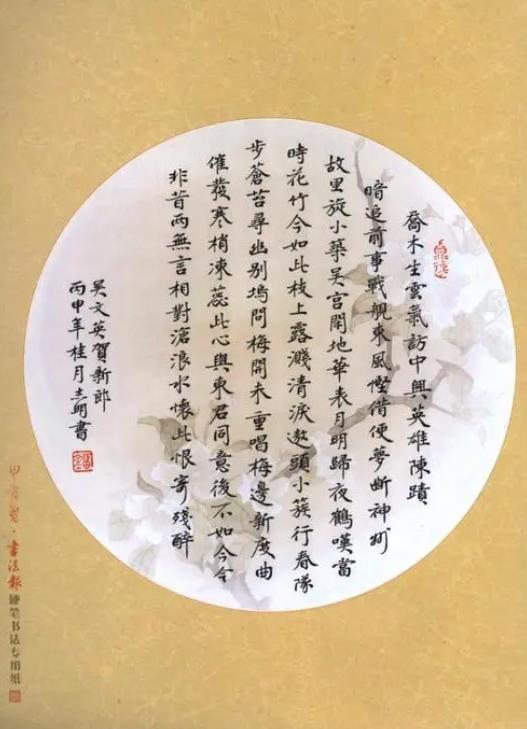 喬木生雲氣訪中興英雄陳蹟
暗追前事戰艦東風慳借便夢斷神州
故里旋小築吳宮閑地華表月明歸夜鶴嘆當
時花竹今如此枝上露濺清淚遨頭小簇行春隊
步蒼苔尋幽別塢問梅開未重唱梅邊新度曲
催發寒梢凍蕊此心與東君同意後不如今今
非昔兩無言相對滄浪水懷此恨寄殘醉
吳文英賀新郎
丙申年桂月志明書
書法報硬笔书法专用纸